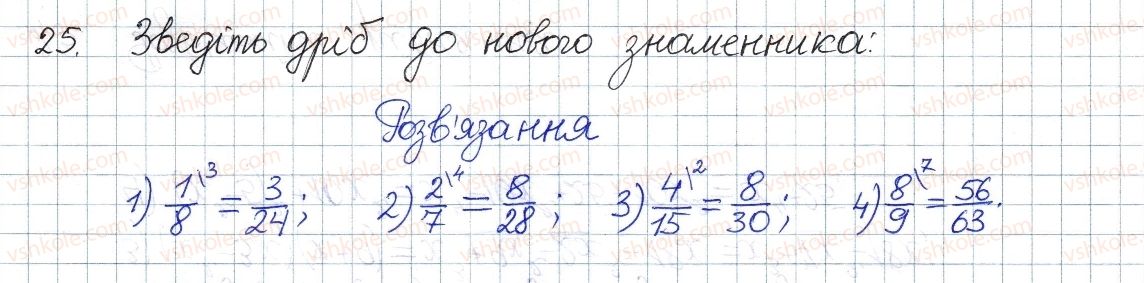 25. Зведіть дріб до нового знаменника:
Розв'язання
1) 1/8 \3 = 3/24; 2) 2/7 \4 = 8/28; 3) 4/15 \2 = 8/30; 4) 8/9 \7 = 56/63.